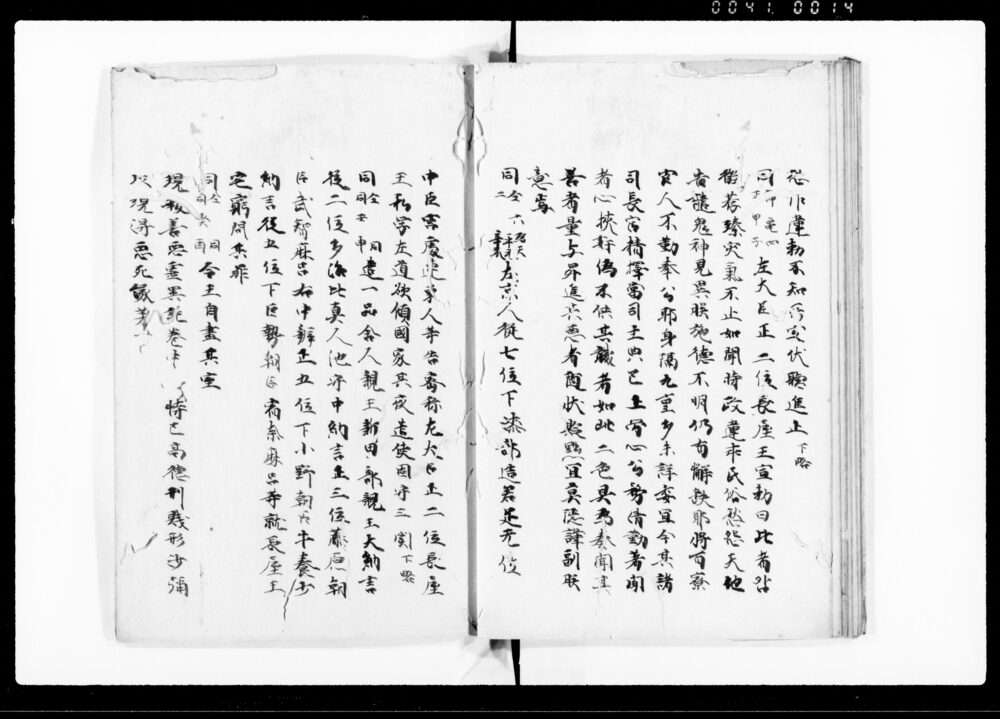 0041. 0014
恐作違勅不知所裁伏聴進止下略
同二月甲子 神亀四 左大臣正二位長屋王宣勅曰比者咎
徴荐臻災氣不止如聞時政違乖民俗愁怨天地
告譴鬼神見異朕施德不明仍有懈缺耶將百寮
官人不勤奉公耶身隔九重多未詳委宜令其諸
司長官精擇當司主典已上勞心公務清勤著聞
者心挾奸偽不供其職者如此二色具名奏聞其
善者量与昇進其悪者随状貶黜宜莫隠諱副朕
意焉
同 二 六 天平元 辛未 左京人從七位下漆部造君足无位
中臣宮處連東人等告密称左大臣正二位長屋
王私学左道欲傾國家其夜遣使固守三関下略
同 同 壬申 同 遣一品舎人親王新田部親王大納言
從二位多治比真人池守中納言正三位藤原朝
臣武智麻呂右中辨正五位下小野朝臣牛養少
納言從五位下巨勢朝臣宿奈麻呂等就長屋王
宅窮問其罪
同 同 癸酉 同 令王自盡其室
現報善悪靈異記卷中 恃己高德刑賤形沙彌
以現得悪死縁第一